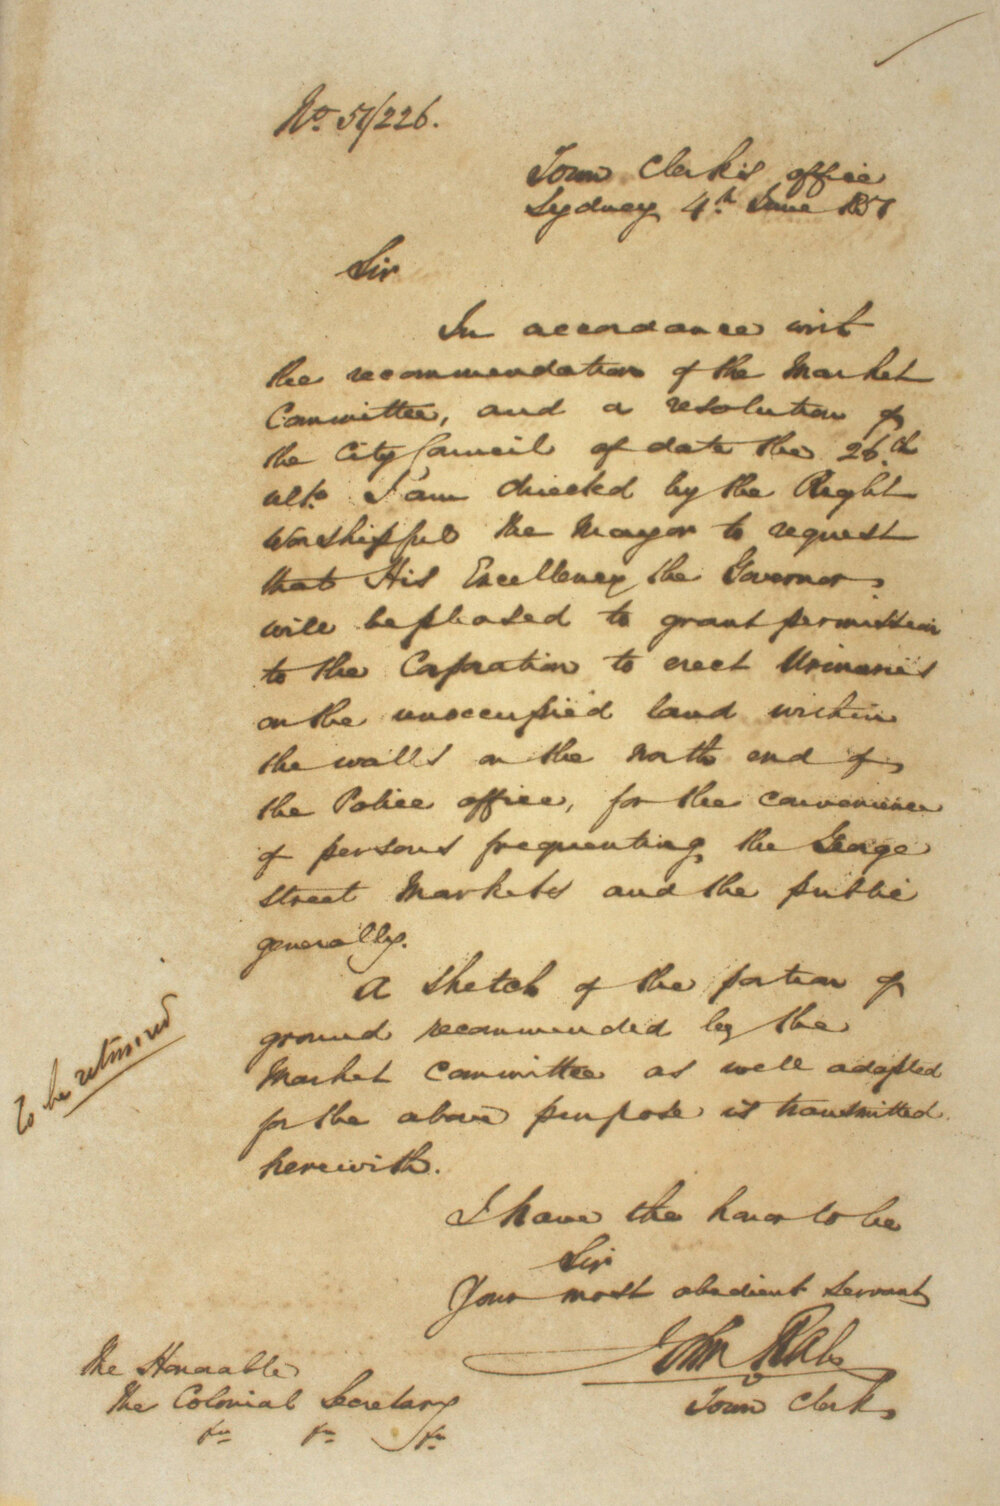 No. 51/226.
Town Clerk's office
Sydney 4th June 1851
Sir
In accordance with
the recommendation of the Market
Committee, and a resolution of
the City Council of date the 26th
ulto. I am directed by the Right
Worshipful the Mayor to request
that His Excellency the Governor
will be pleased to grant permission
to the Corporation to erect Urinaries
on the unoccupied land within
the walls on the north end of
the Police office, for the convenience
of persons frequenting the George
Street Markets and the public
generally.
A sketch of the portion of
ground recommended by the
Market Committee as well adapted
for the above purpose is transmitted
herewith.
To be returned
I have the honor to be
Sir
Your most obedient servant
John Rae
Town Clerk
The Honorable
The Colonial Secretary